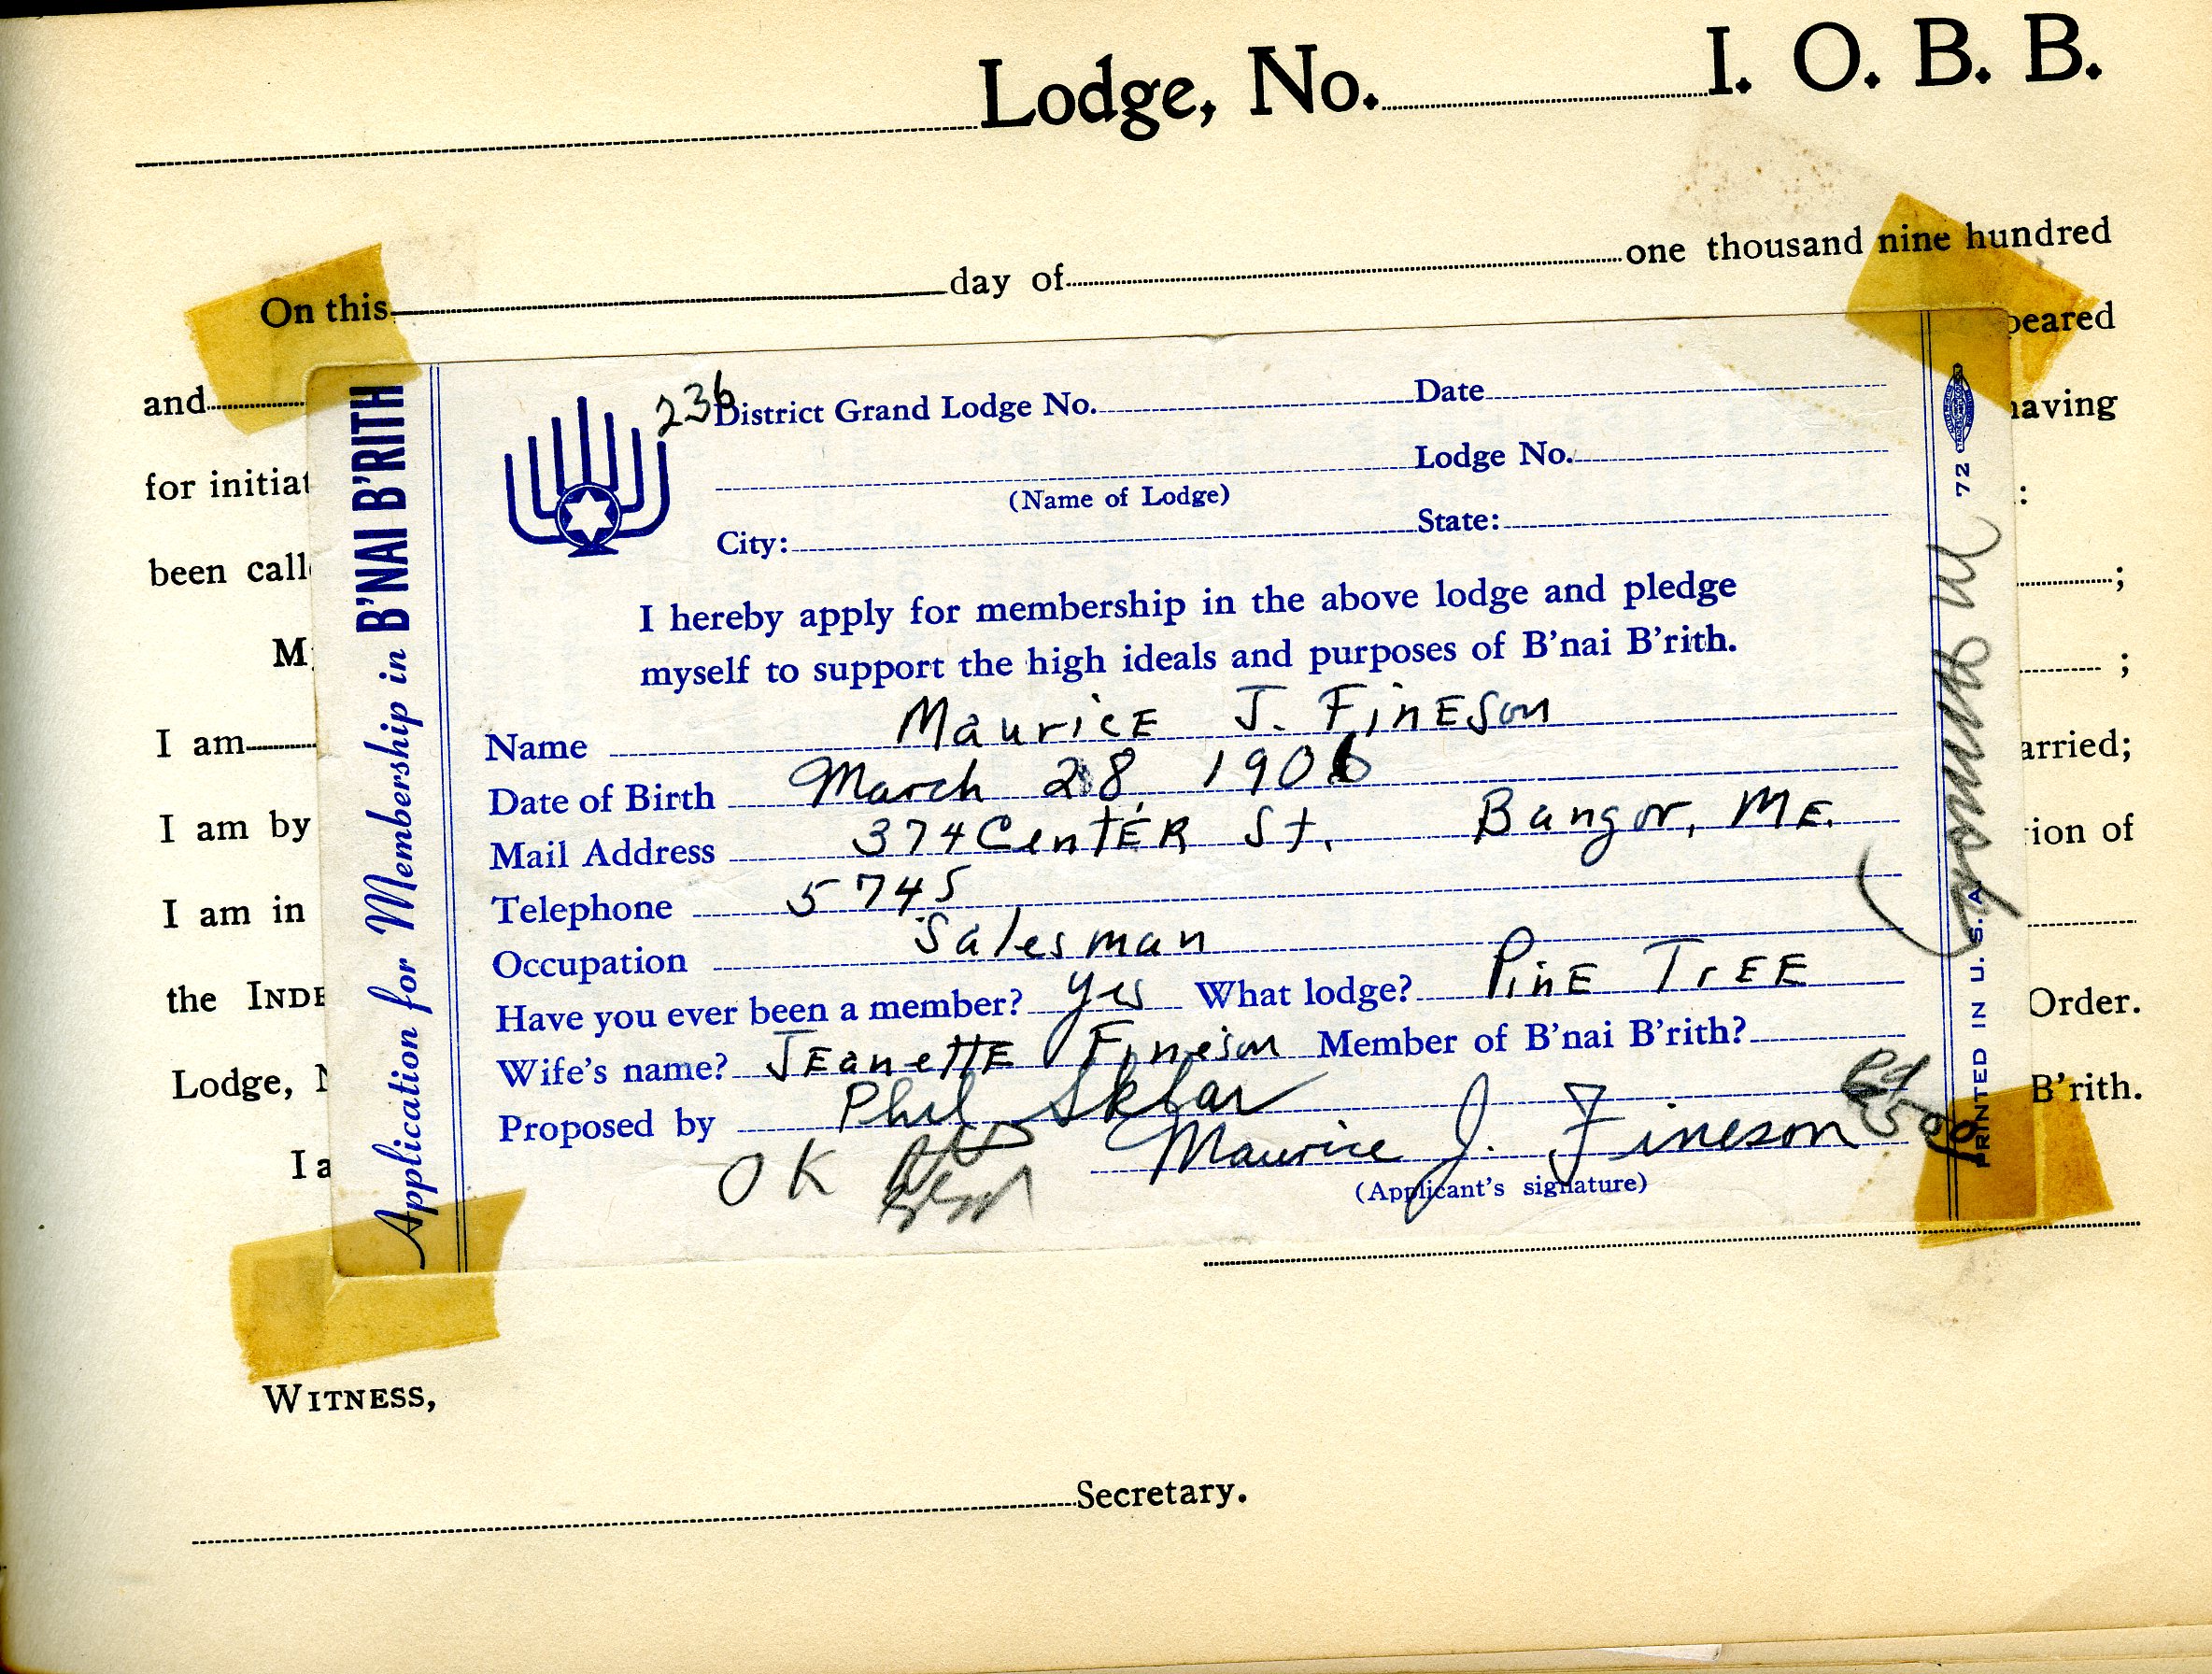 Lodge, No. I. O. B. B.
On this day of one thousand nine hundred
peared
and having
for initiat :
been call ;
M ;
I am arried;
I am by ion of
I am in
the INDE Order.
Lodge, N B'rith.
I a
Application for Membership in B'NAI B'RITH
236
District Grand Lodge No. Date
Lodge No.
(Name of Lodge)
City: State:
I hereby apply for membership in the above lodge and pledge
myself to support the high ideals and purposes of B'nai B'rith.
Name MauricE J. FinESon
Date of Birth March 28, 1906
Mail Address 374 CenTER St. Bangor, ME.
Telephone 5745
Occupation Salesman
Have you ever been a member? Yes What lodge? PinE TrEE
Wife's name? JEanettE Fineson Member of B'nai B'rith?
Proposed by Phil Sklar
OK Maurice J. Fineson
(Applicant's signature)
PRINTED IN U. S. A. 72
WITNESS,
Secretary.